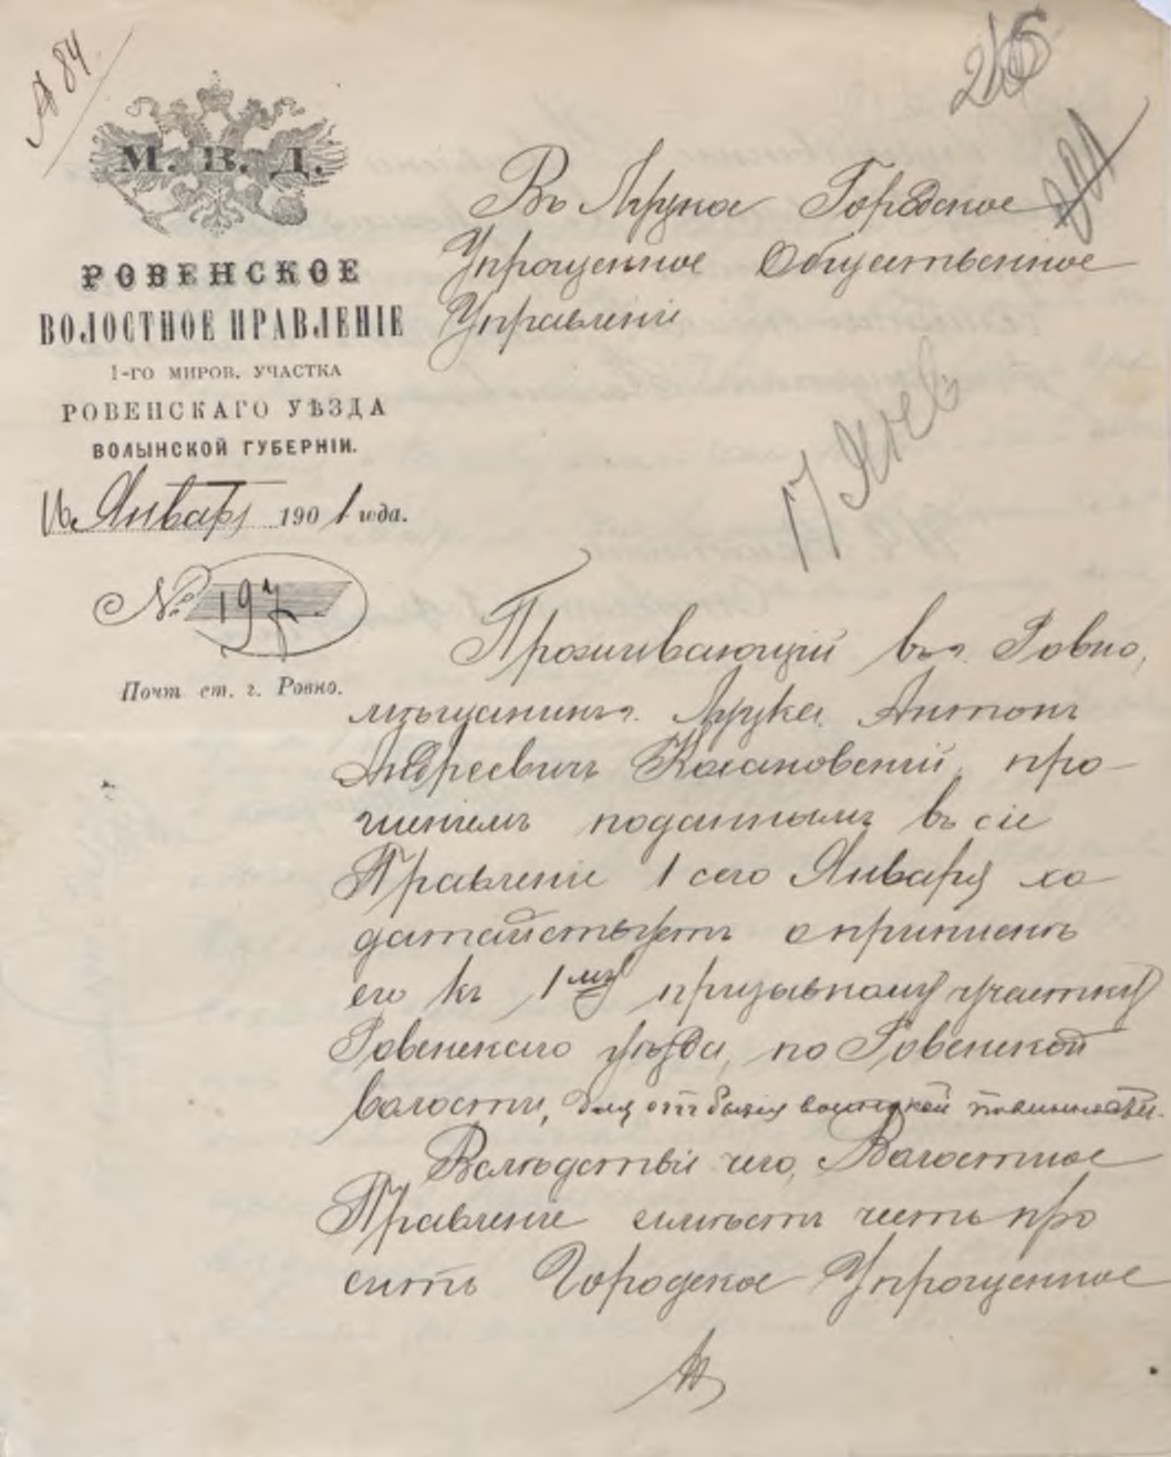 № 84
М. В. Д.
РОВЕНСКОЕ
ВОЛОСТНОЕ ПРАВЛЕНІЕ
1-ГО МИРОВ. УЧАСТКА
РОВЕНСКАГО УѢЗДА
ВОЛЫНСКОЙ ГУБЕРНІИ.
16 Января 1901 года.
№ 197
Почт ст. г. Ровно.
Въ Городское
Упрощенное Общественное
Управленіе
17 Янв
Проживающій въ г. Ровно,
мѣщанинъ г. Антонъ
Андреевичъ про-
шеніемъ поданнымъ въ сіе
Правленіе 1 сего Января хо
датайствуетъ о припискѣ
его къ 1му призывному участку
Ровенскаго уѣзда, по Ровенской
волости, для отбытія воинской повинности.
Вслѣдствіе чего, Волостное
Правленіе имѣетъ честь про
сить Городское Упрощенное